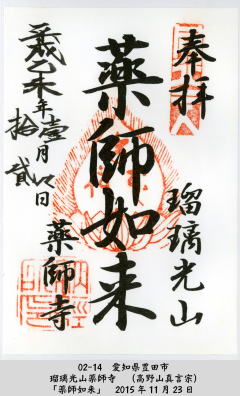 奉拝
瑠璃光山
薬師如来
薬師寺
平成乙未年
拾壹月
貳 日
02-14 愛知県豊田市
瑠璃光山薬師寺 (高野山真言宗)
「薬師如来」 2015年11月23日